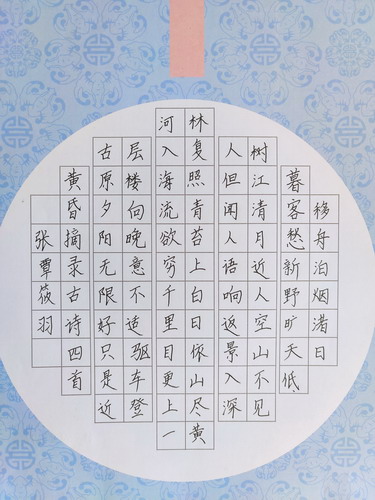 移舟泊烟渚日
暮客愁新野旷天低
树江清月近人空山不见
人但闻人语响返景入深
林复照青苔上白日依山尽黄
河入海流欲穷千里目更上一
层楼向晚意不适驱车登
古原夕阳无限好只是近
黄昏摘录古诗四首
张覃筱羽